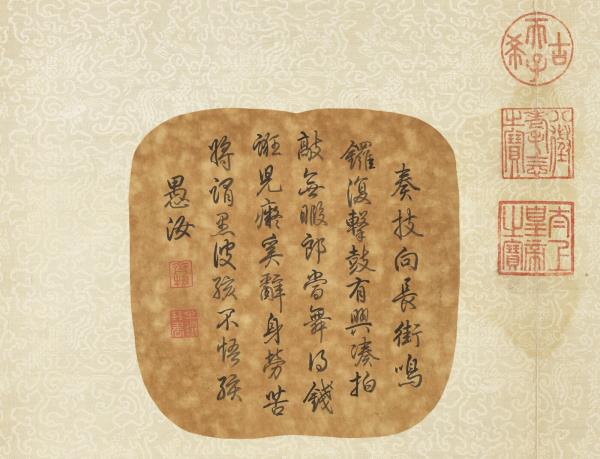 古希天子
八徵耄念之寶
太上皇帝之寶
奏技向長街鳴
鑼復擊鼓有興湊拍
敲無暇郎當舞得錢
誑兒癡奚辭身勞苦
將謂愚彼孩不悟孩
愚汝